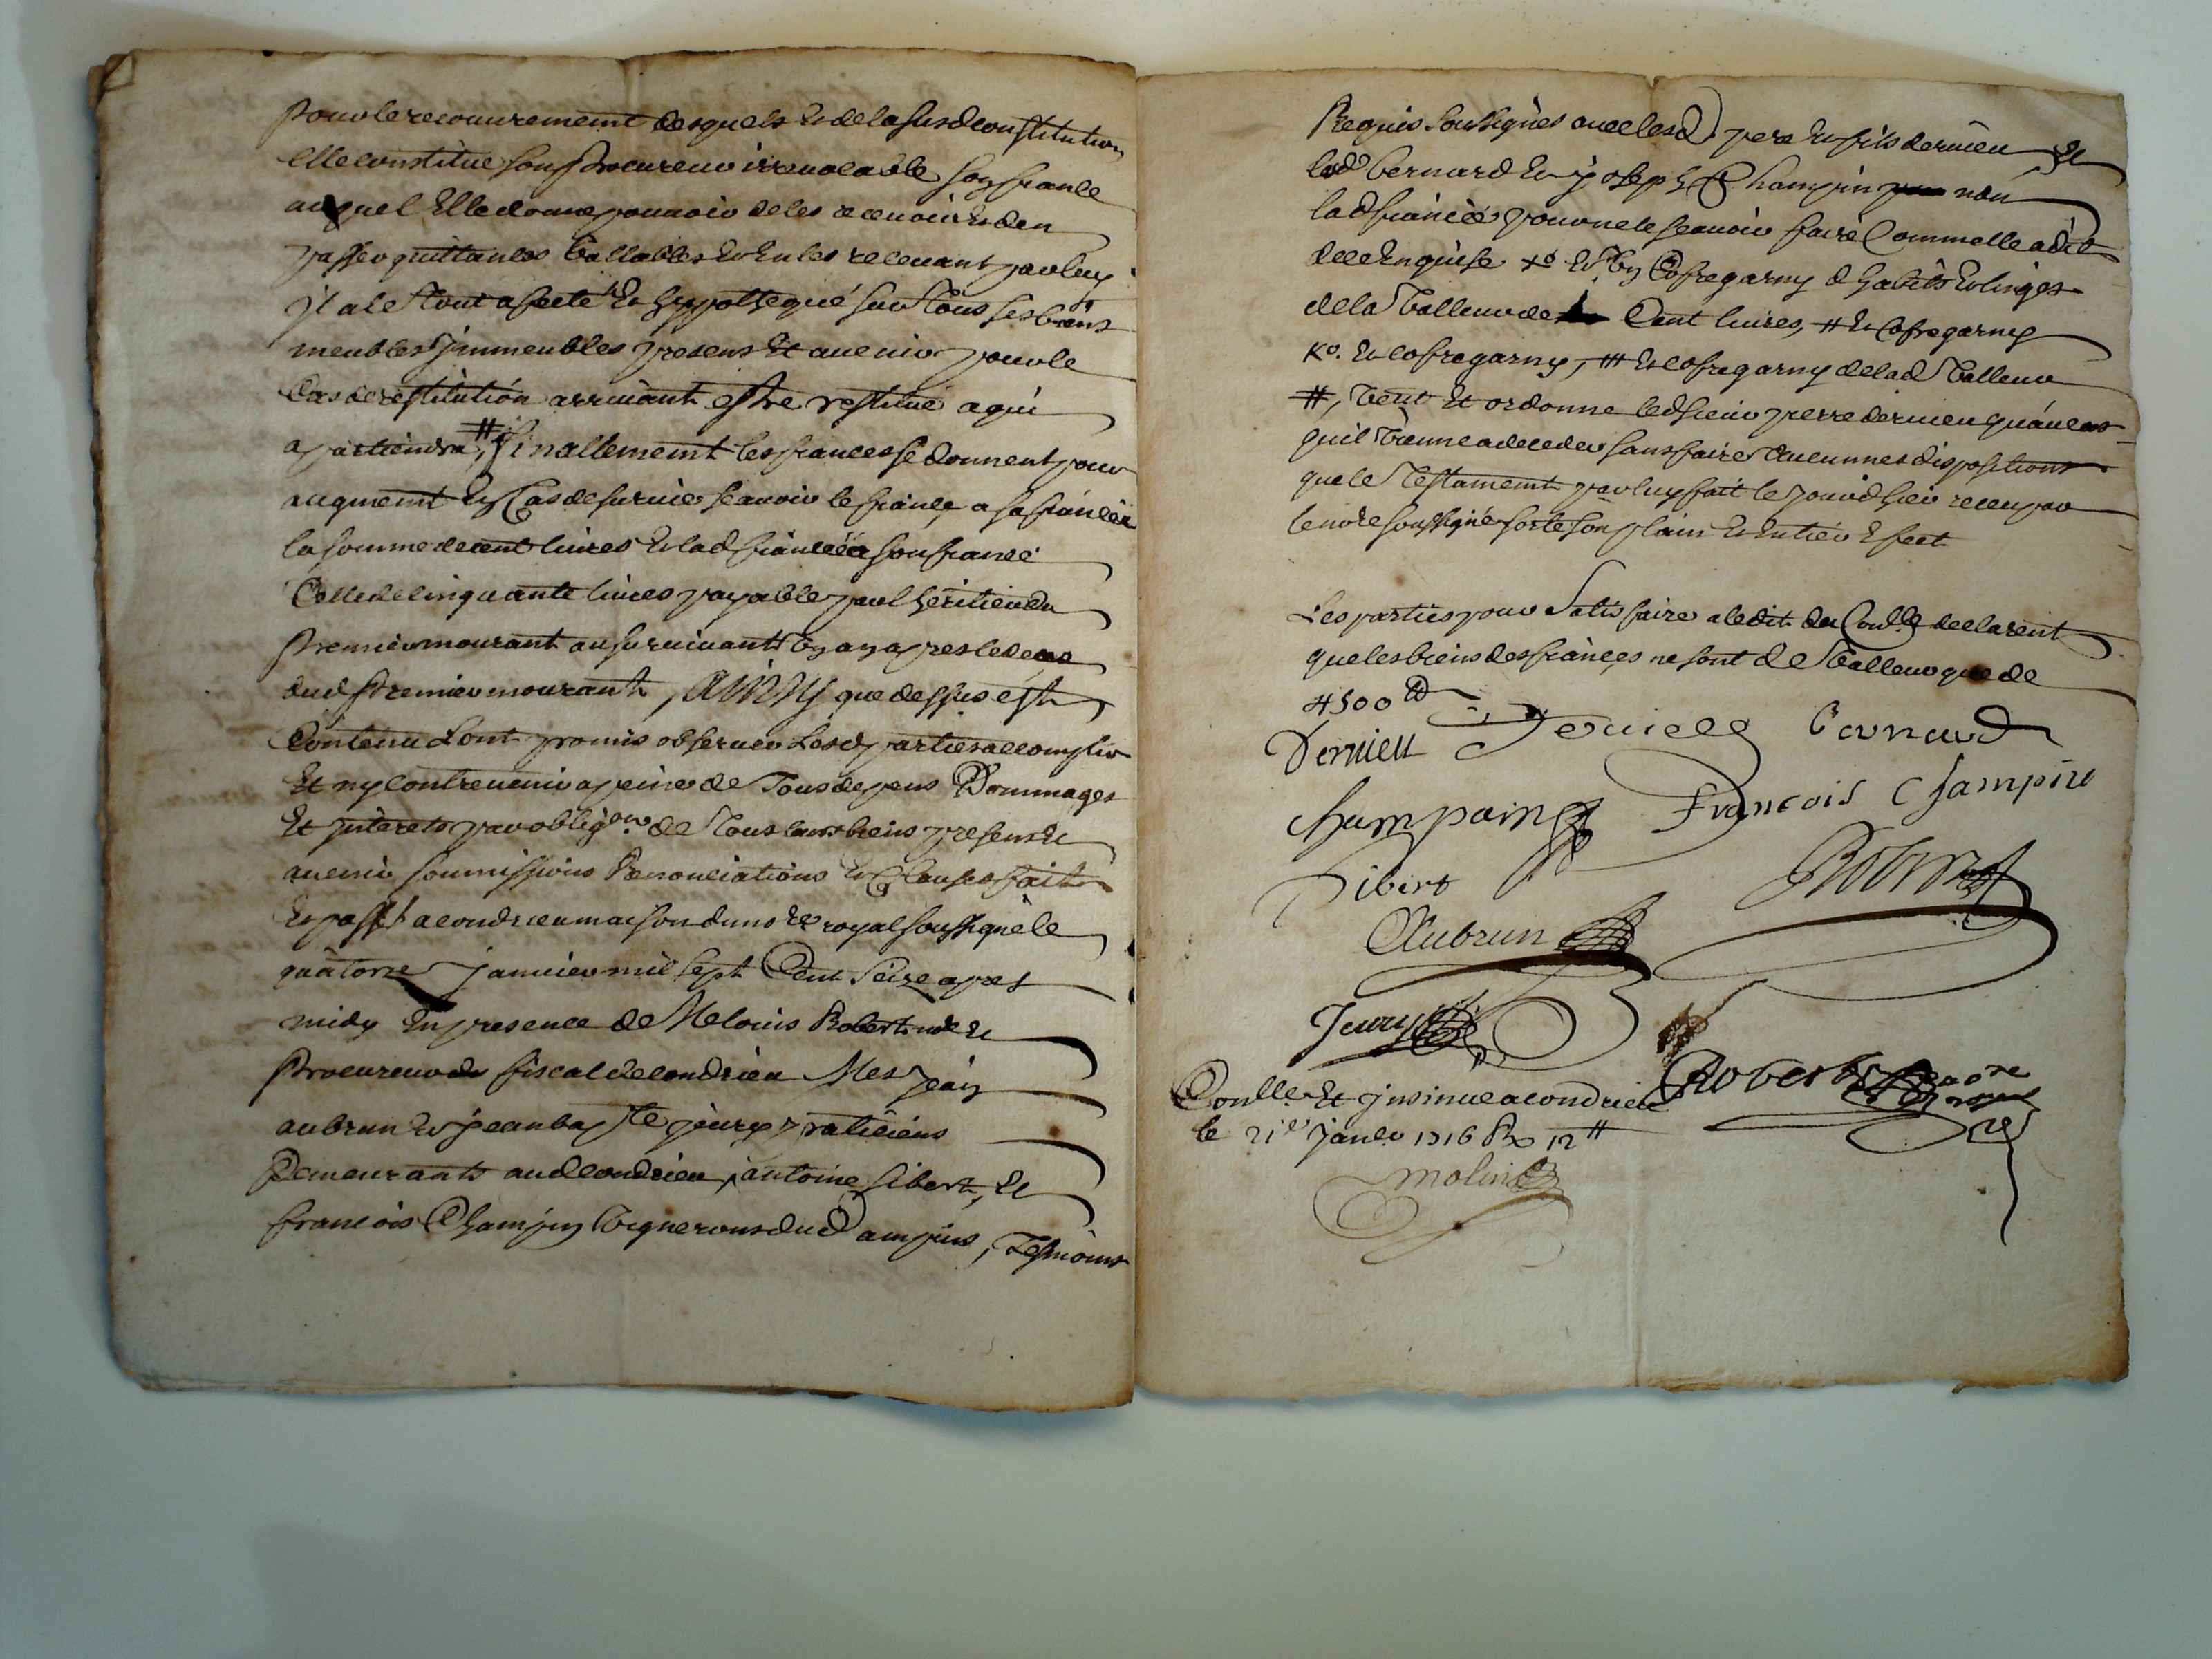 pour le recouurement desquels et de la susd constitution
elle constitue son procureur irreuocable son fiancé
auquel elle donne pouuoir de les receuoir et den
passer quittances vallables et en les receuant par luy
il a le tout afecté et hyppothequé sur tous ses biens
meubles immeubles presens et auenir pour le
cas de restitution arriuant estre restitué a qui
apartiendra, # finallement les fiances se donnent pour
augment en cas de suruie scauoir le fiancé a sa fiancée
la somme de cent liures et lad fiancée a son fiancé
celle de cinquante liures payable par lheritier du
premier mourant au suruiuant un an apres le deces
dud premier mourant, AINSY que dessus est
contenu lont promis obseruer lesd parties accomplir
et ny contreuenir a peine de tous depens dommages
et interets par oblig.on de tous leurs biens presens et
auenir soumissions renonciations et clauses fait
et passé a condrieu maison du no.re royal soussigné le
quatorze januier mil sept cent seize apres
midy en presence de Me louis Robert no.re et
procureur fiscal de condrieu Mes jean
aubrun et jean baptiste jeury praticiens
demeurants aud condrieu, antoine libert, et
francois Champin vignerons dud ampuis, tesmoins
Requis soussignés auec lesd pere et fils deruieu, et
led bernard et joseph Champin non
lad fiancée pour ne le scauoir faire comme elle a dit
de ce enquise x° et un cofre garny d habits et linges
de la valleur de cent liures, # et cofre garny
x°. et cofre garny, ## et cofre garny de lad valleur
#, veut et ordonne led sieur pierre deruieu quau cas
quil vienne a deceder sans faire aucunnes dispositions
que le testament par luy fait le jour dhier receu par
le no.re soussigné sorte son plain et entier efect
Les parties pour satisfaire a ledit du Con.lle declarent
que les biens des fiancés ne sont de valleur que de
4500 tt
Deruieu Deruieu Bernard
Champain Francois Champin
libert Robert
Aubrun
Jeury
Con.lle et insinué a condrieu Robert no.re royal
le 21e janer 1716 R 12 tt
molin